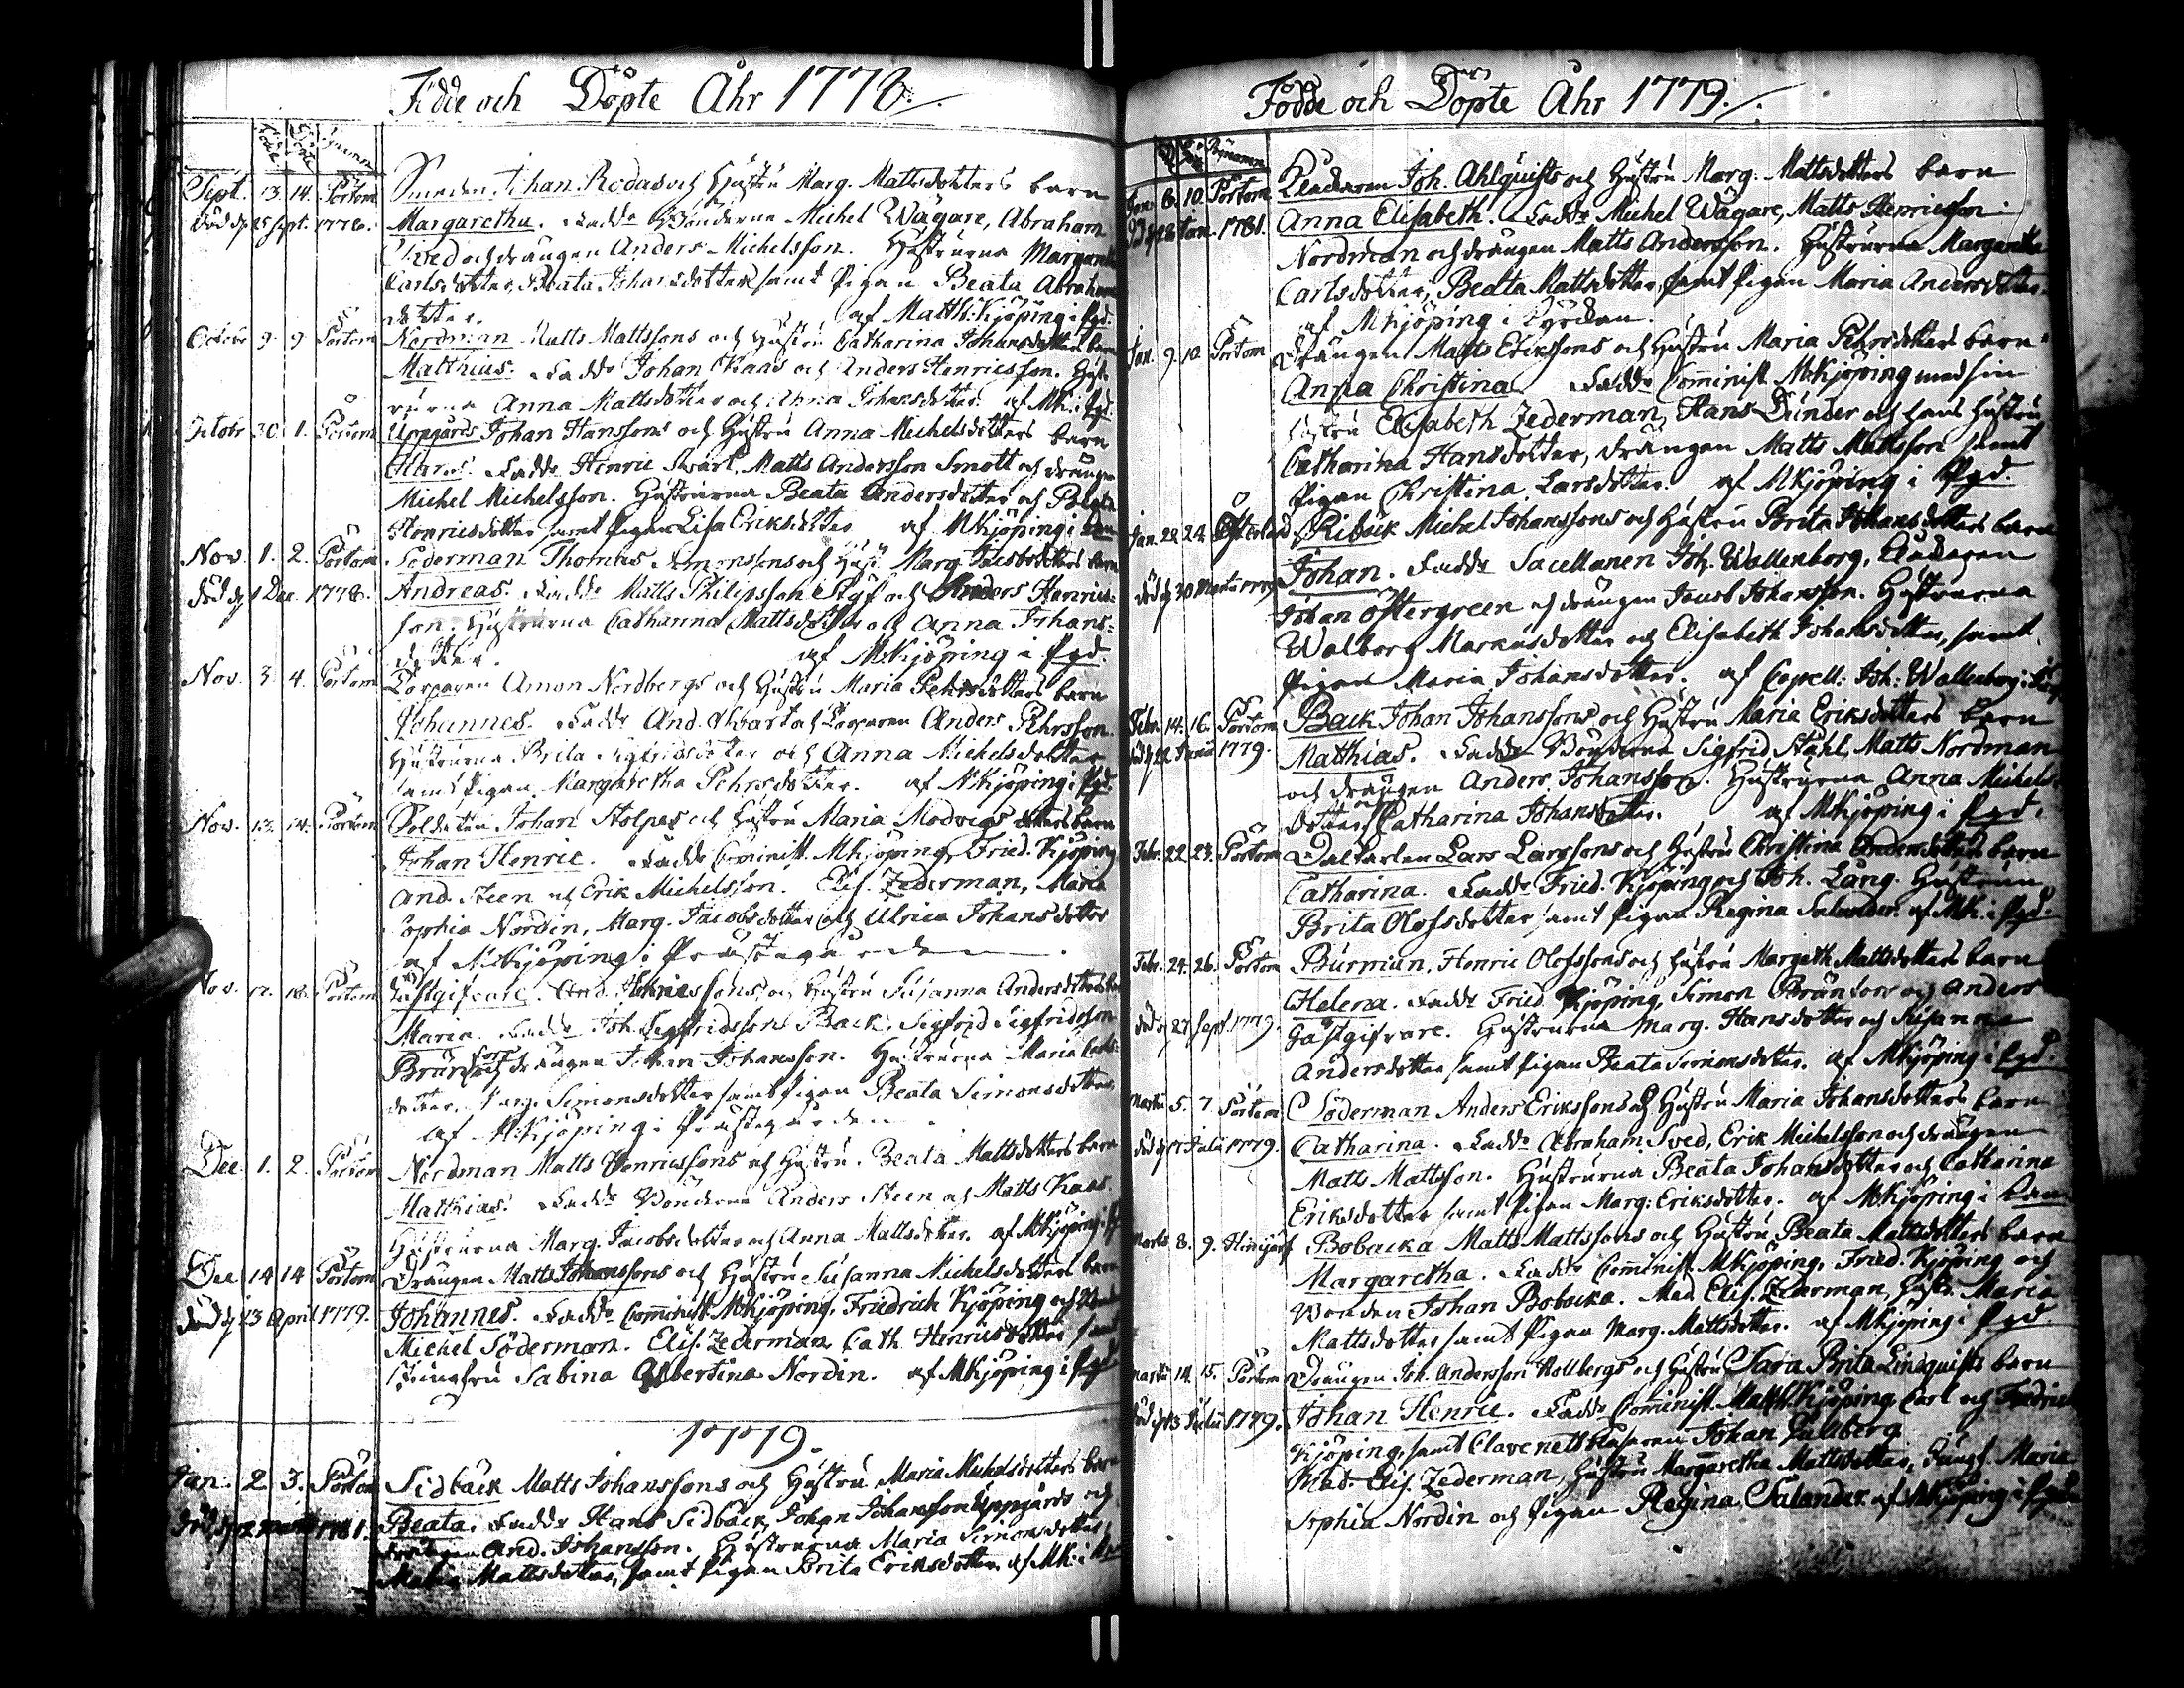 Födde och Döpte Åhr 1778.
Födde Döpte Bynamn
Sept. 13. 14. Pörtom Smeden Johan Rodas och Hustru Marg. Mattsdotters barn
död d. 25 Sept. 1778. Margaretha. Fadd. Bönderne Michel Wägare, Abraham
Sved och drängen Anders Michelsson. Hustrurna Margaretha
Carlsdotter, Beata Johansdotter samt Pigan Beata Abrahams
dotter. af Matth: Kjöping i Pgd.
Octobr 9. 9. Pörtom Nordman Matts Mattssons och Hustru Catharina Johansdotters barn
Matthias. Fadd. Johan Kaas och Anders Henricsson. Hust-
rurna Anna Mattsdotter och Anna Johansdotter. af MK. i Pgd.
Octobr 30. 1. Pörtom Uppgårds Johan Hanssons och Hustru Anna Michelsdotters barn
Hans. Fadd. Henric Svart, Matts Andersson Smott och drängen
Michel Michelsson. Hustrurna Beata Andersdotter och Beata
Henricsdotter samt Pigan Lisa Eriksdotter af MKjöping i
Nov. 1. 2. Pörtom Söderman Thomas Simonssons och Hust. Marg. Jacobsdotters barn
död d. 1 Dec. 1778. Andreas. Fadd. Matts Philipsson och Anders Henrics-
son. Hustrurna Catharina Mattsdotter och Anna Johans-
dotter. af M:Kjöping i Pgd.
Nov. 3. 4. Pörtom Torparen Amon Nordbergs och Hustru Maria Pehrsdotters barn
Johannes. Fadd. And. Svart och Torparen Anders Pehrsson.
Hustrurna Brita Sigfridsdotter och Anna Michelsdotter
samt Pigan Margaretha Pehrsdotter. af MKjöping i Pgd.
Nov. 13. 14. Pörtom Soldaten Johan Stolpes och Hustru Maria dotters barn
Johan Henric. Fadd. Cominist. MKjöping, Fried. Kjöping
And. Steen och Erik Michelsson. Elis. Zederman, Maria
Sophia Nordin, Marg. Jacobsdotter och Ulrica Johansdotter
af MKjöping i Prästegården.
Nov. 17. 18. Pörtom Gästgifvare And. Henricssons och Hustru Susanna Andersdotters barn
Maria. Fadd. Joh. Sigfridsson Back, Sigfrid Sigfridsson
Brunfors och drängen Johan Johansson. Hustrurna Maria Carls-
dotter, Marg. Simonsdotter samt Pigan Beata Simonsdotter
af M:Kjöping i Prästegården.
Dec. 1. 2. Pörtom Nordman Matts Henricssons och Hustru Beata Mattsdotters barn
Matthias. Fadd. Bönderne Anders Steen och Matts Kaas.
Hustrurna Marg. Jacobsdotter och Anna Mattsdotter. af MKjöping i Pgd.
Dec 14 14 Pörtom Drängen Matts Johanssons och Hustru Susanna Michelsdotters barn
död d. 13 April 1779. Johannes. Fadd. Cominist. MKjöping, Friedrich Kjöping och
Michel Söderman. Elis. Zederman, Cath. Henricsdotter samt
Jungfru Sabina Albertina Nordin. af MKjöping i Pgd.
1779.
Jan. 2. 3. Pörtom Sidback Matts Johanssons och Hustru Maria Michelsdotters barn
död d. 1781. Beata. Fadd. Hans Sidback, Johan Johansson Uppgårds och
drängen And. Johansson. Hustrurna Maria Simonsdotter,
Maria Mattsdotter, samt Pigan Brita Eriksdotter. af MK. i
Födde och Döpte Åhr 1779.
Bynamn
Jan. 6. 10. Pörtom Klockaren Joh. Ahlquists och Hustru Marg. Mattsdotters barn
död d. 28 Jan. 1781. Anna Elisabeth. Fadd. Michel Wägare, Matts Henricsson
Nordman och drängen Matts Andersson. Hustrurna Margaretha
Carlsdotter, Beata Mattsdotter, samt Pigan Maria Andersdotter.
af MKjöping i Kyrckan.
Jan. 9. 10. Pörtom Drängen Matts Erikssons och Hustru Maria Pehrsdotters barn
Anna Christina. Fadd. Cominist. M:Kjöping med sin
hustru Elisabeth Zederman, Hans Dunder och hans Hustru
Catharina Hansdotter, drängen Matts Mattsson samt
Pigan Christina Larsdotter. af MKjöping i Pgd.
Jan. 22. 24. Ribäck Michel Johanssons och Hustru Brita Johansdotters barn
död d. 30 Martii 1779. Johan. Fadd. Sacellanen Joh. Wallenborg, Klockaren
Johan Östergreen och drängen Jacob Johansson. Hustrurna
Walborg Markusdotter och Elisabeth Johansdotter, samt
Pigan Maria Johansdotter. af Capell: Joh: Wallenborg i
Febr. 14. 16. Pörtom Back Johan Johanssons och Hustru Maria Eriksdotters barn
död d. 22 Junii 1779. Matthias. Fadd. Bönderne Sigfrid Ståhl, Matts Nordman
och drängen Anders Johansson. Hustrurna Anna Michels-
dotter, Catharina Johansdotter. af MKjöping i Pgd.
Febr. 22 23. Pörtom Dalkarlen Lars Larssons och Hustru Christina Andersdotters barn
Catharina. Fadd. Fried. Kjöping och Joh. Lång. Hustrun
Brita Olofsdotter samt Pigan Regina Salander. af MK. i Pgd.
Febr. 24. 26. Pörtom Burman, Henric Olofssons och Hustru Margeth Mattsdotters barn
död d. 27 Sept 1779. Helena. Fadd. Fried. Kjöping, Simon Brunfors och Anders
Gästgifvare. Hustrurna Marg. Hansdotter och Susanna
Andersdotter samt Pigan Beata Simonsdotter. af MKjöping i Pgd.
Martii 5. 7. Pörtom Söderman Anders Erikssons och Hustru Maria Johansdotters barn
död d. 17 Julii 1779. Catharina. Fadd. Abraham Sved, Erik Michelsson och drängen
Matts Mattsson. Hustrurna Beata Johansdotter och Catharina
Eriksdotter samt Pigan Marg: Eriksdotter. af MKjöping i
Martii 8. 9. Bobacka Matts Mattssons och Hustru Beata Mattsdotters barn
Margaretha. Fadd. Cominist. MKjöping, Fried. Kjöping och
Bonden Johan Bobacka. Mad. Elis. Zederman, Hust. Maria
Mattsdotter samt Pigan Marg. Mattsdotter. af MKjöping i Pgd.
Martii 14. 15. Pörtom Drängen Joh. Andersson Hollbergs och Hustru Sara Brita Lindquists barn
död d. 13 Julii 1779. Johan Henric. Fadd. Cominist. Matth. Kjöping, Carl och Fredrich
Kjöping, samt Johan
Mad. Elis. Zederman, Hustru Margaretha Mattsdotter, Jungf. Maria
Sophia Nordin och Pigan Regina Salander. af MKjöping i Pgd.